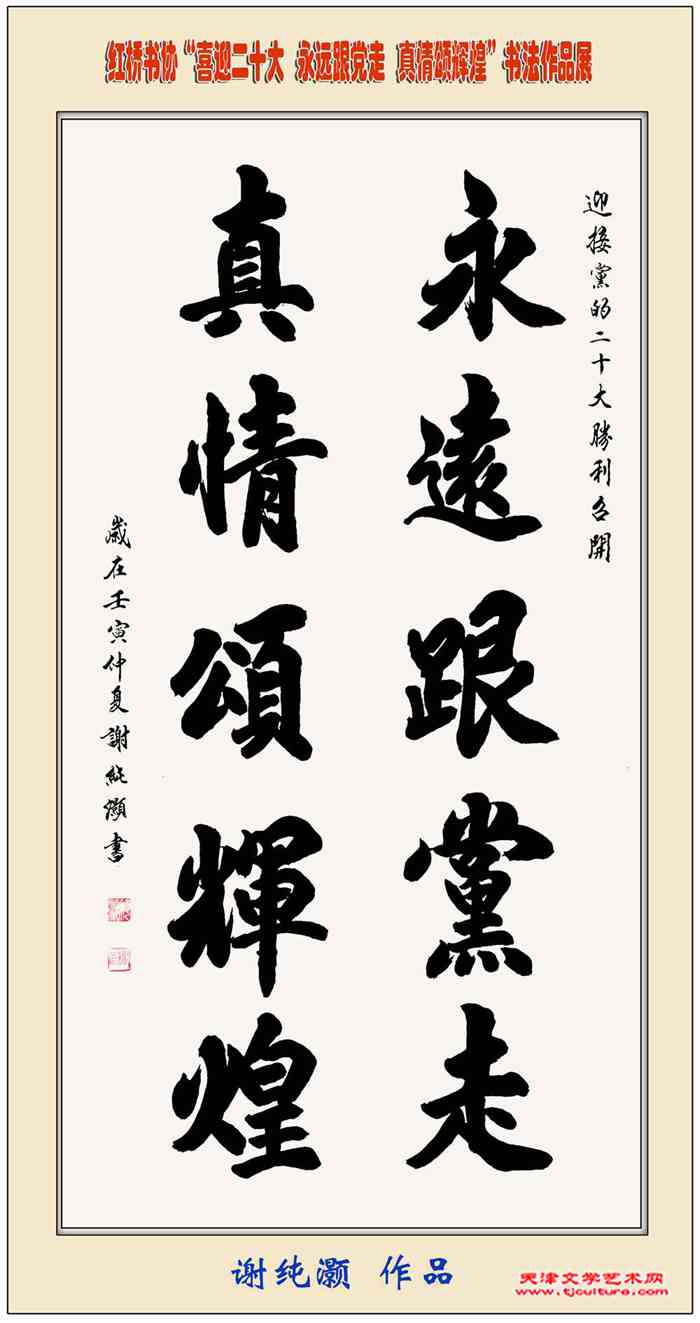 红桥书协“喜迎二十大 永远跟党走 真情颂辉煌”书法作品展
迎接黨的二十大勝利召開
永遠跟黨走
真情頌輝煌
歲在壬寅仲夏謝純灝書
谢纯灏 作品
天津文学艺术网
www.tjculture.com